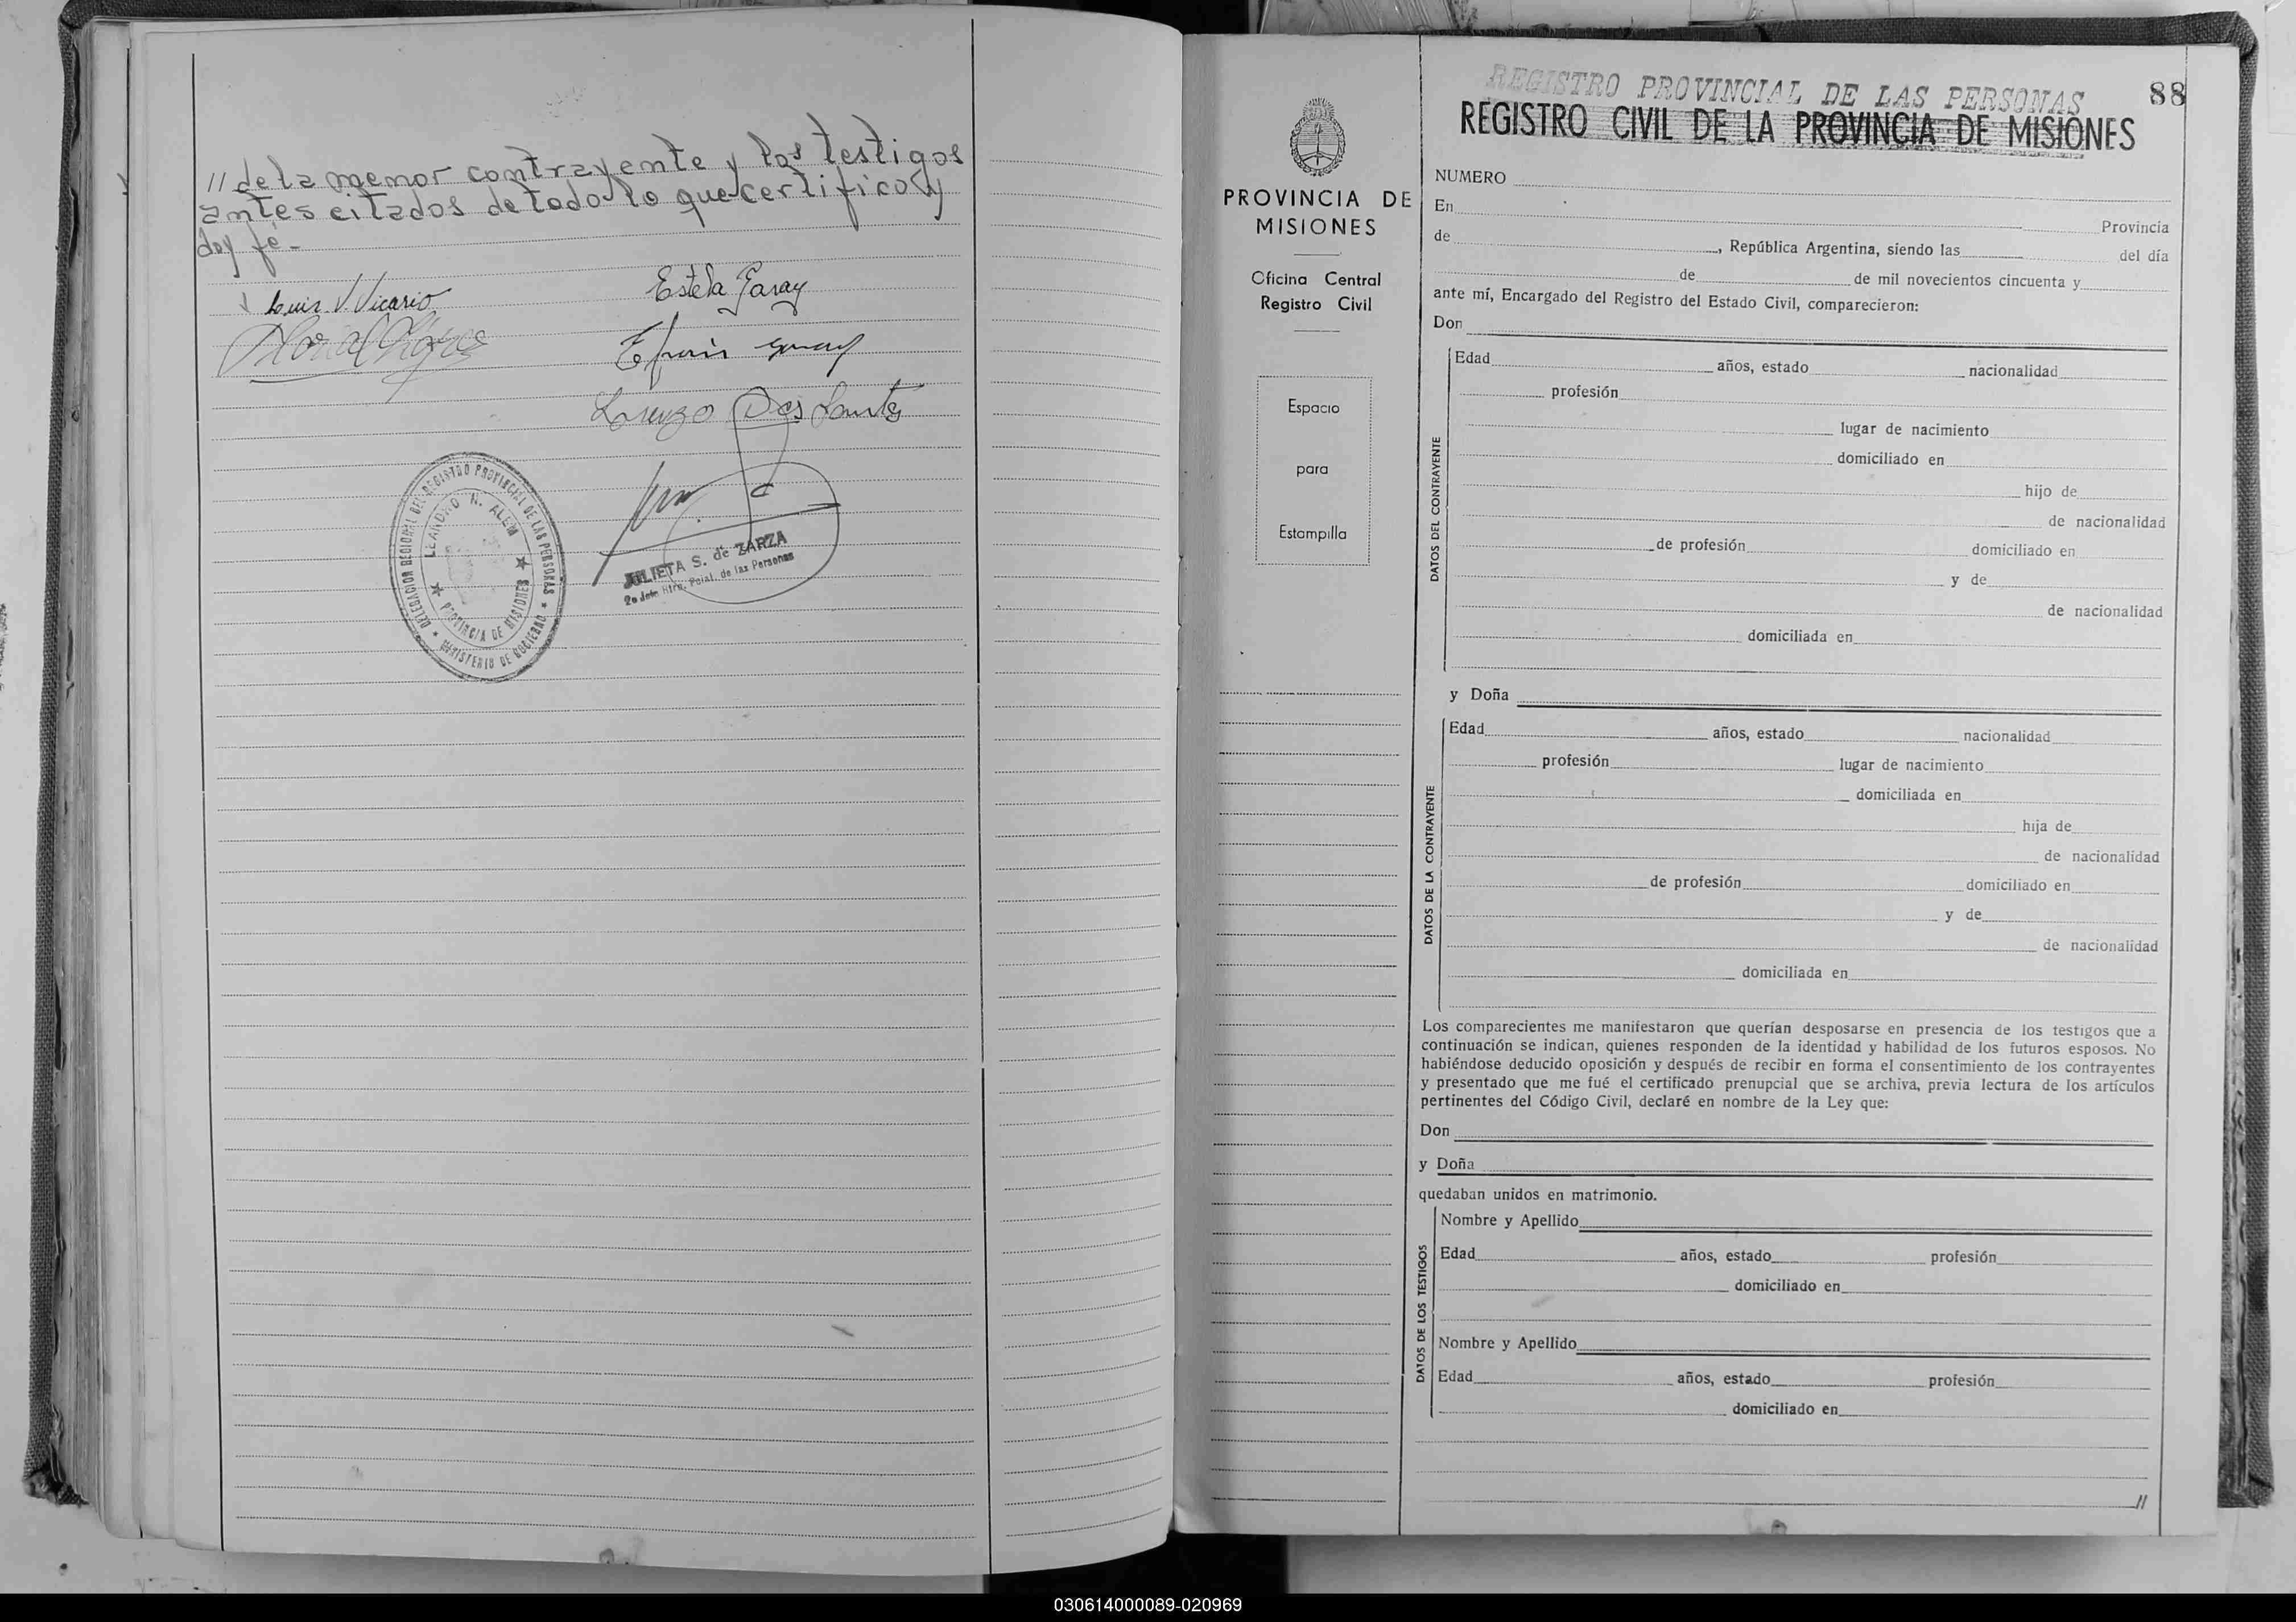 // de la menor contrayente y los testigos
antes citados de todo lo que certifico y
doy fé.-
Luis V. Vicario
Estela Garay
Lorenzo Dos Santos
DELEGACION REGIONAL DEL REGISTRO PROVINCIAL DE LAS PERSONAS
LEANDRO N. ALEM
PROVINCIA DE MISIONES
MINISTERIO DE GOBIERNO
JULIETA S. de ZARZA
de las Personas
PROVINCIA DE
MISIONES
Oficina Central
Registro Civil
Espacio
para
Estampilla
REGISTRO PROVINCIAL DE LAS PERSONAS
88
REGISTRO CIVIL DE LA PROVINCIA DE MISIONES
NUMERO
En Provincia
de , República Argentina, siendo las del día
de de mil novecientos cincuenta y
ante mí, Encargado del Registro del Estado Civil, comparecieron:
Don
DATOS DEL CONTRAYENTE
Edad años, estado nacionalidad
profesión
lugar de nacimiento
domiciliado en
hijo de
de nacionalidad
de profesión domiciliado en
y de
de nacionalidad
domiciliada en
y Doña
DATOS DE LA CONTRAYENTE
Edad años, estado nacionalidad
profesión lugar de nacimiento
domiciliada en
hija de
de nacionalidad
de profesión domiciliado en
y de
de nacionalidad
domiciliada en
Los comparecientes me manifestaron que querían desposarse en presencia de los testigos que a
continuación se indican, quienes responden de la identidad y habilidad de los futuros esposos. No
habiéndose deducido oposición y después de recibir en forma el consentimiento de los contrayentes
y presentado que me fué el certificado prenupcial que se archiva, previa lectura de los artículos
pertinentes del Código Civil, declaré en nombre de la Ley que:
Don
y Doña
quedaban unidos en matrimonio.
DATOS DE LOS TESTIGOS
Nombre y Apellido
Edad años, estado profesión
domiciliado en
Nombre y Apellido
Edad años, estado profesión
domiciliado en
//
030614000089-020969